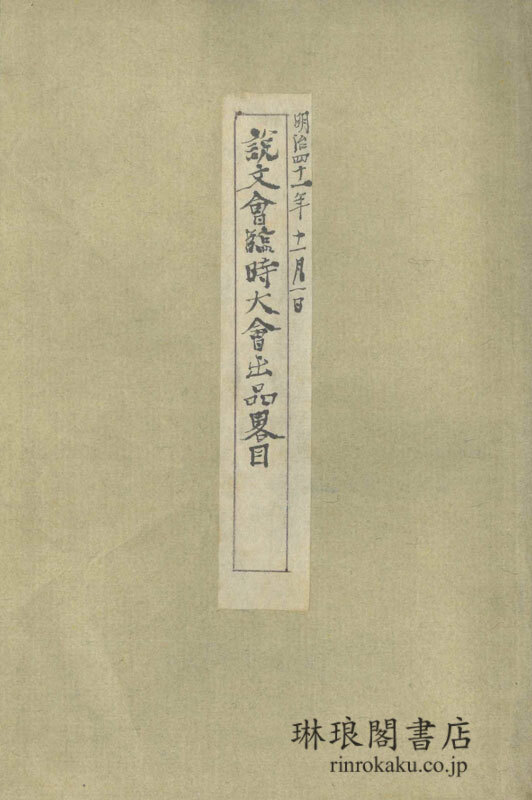 明治四十一年十一月一日
説文會臨時大會出品畧目
琳琅閣書店
rinrokaku.co.jp